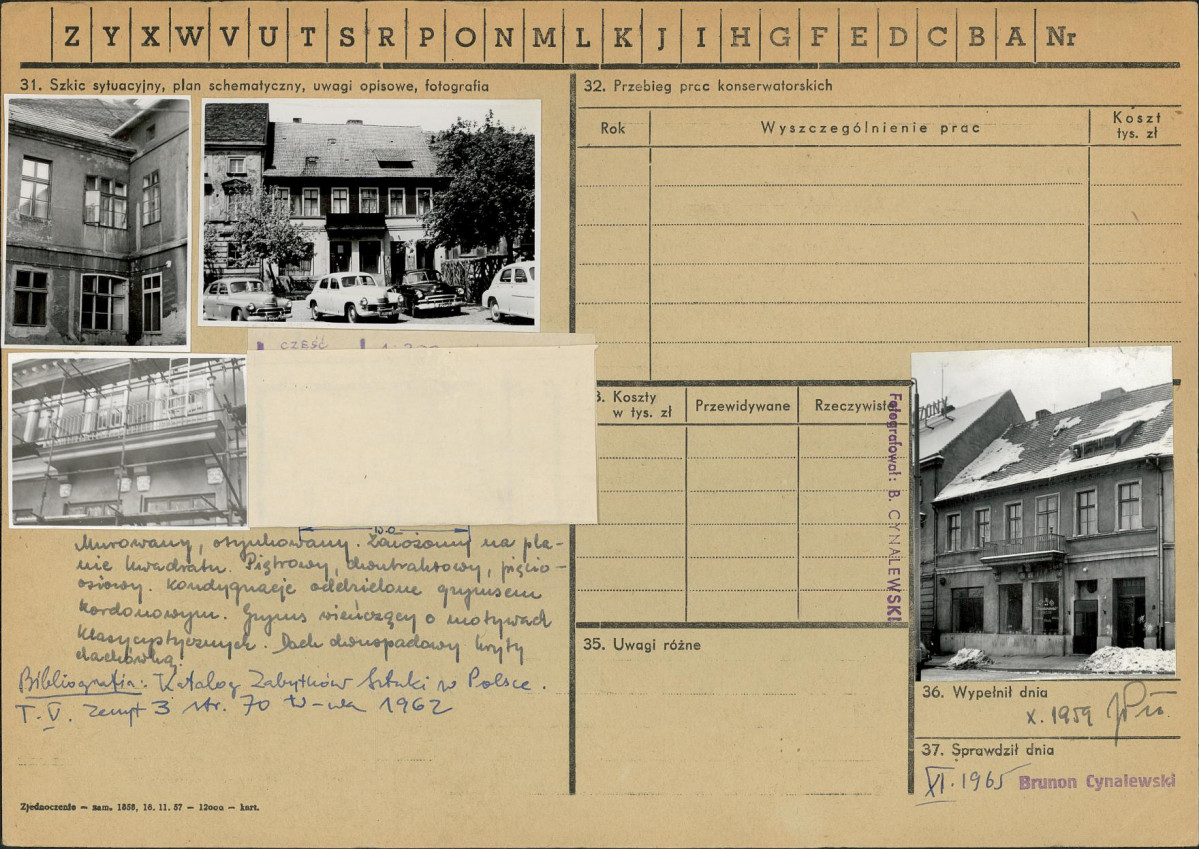 Z Y X W V U T S R P O N M L K J I H G F E D C B A Nr
31. Szkic sytuacyjny, plan schematyczny, uwagi opisowe, fotografia
CZĘŚĆ
Murowany, otynkowany. Założony na pla-
nie kwadratu. Piętrowy, dwutraktowy, pięcio-
osiowy. Kondygnacje oddzielone gzymsem
kordonowym. Gzyms wieńczący o motywach
klasycystycznych. Dach dwuspadowy kryty
dachówką.
Bibliografia: Katalog Zabytków Sztuki w Polsce.
T. V. Zeszyt 3 str. 70 W-wa 1962
Zjednoczenie — zam. 1858, 16. 11. 57 — 12000 — kart.
32. Przebieg prac konserwatorskich
Rok
Wyszczególnienie prac
Koszt
tys. zł
3. Koszty
w tys. zł
Przewidywane
Rzeczywiste
Fotografował: B. CYNALEWSKI
35. Uwagi różne
36. Wypełnił dnia
X. 1959
37. Sprawdził dnia
XI. 1965 Brunon Cynalewski